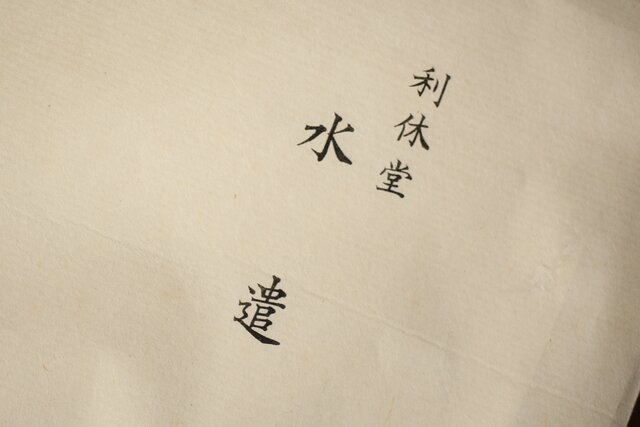 利休堂
水遣